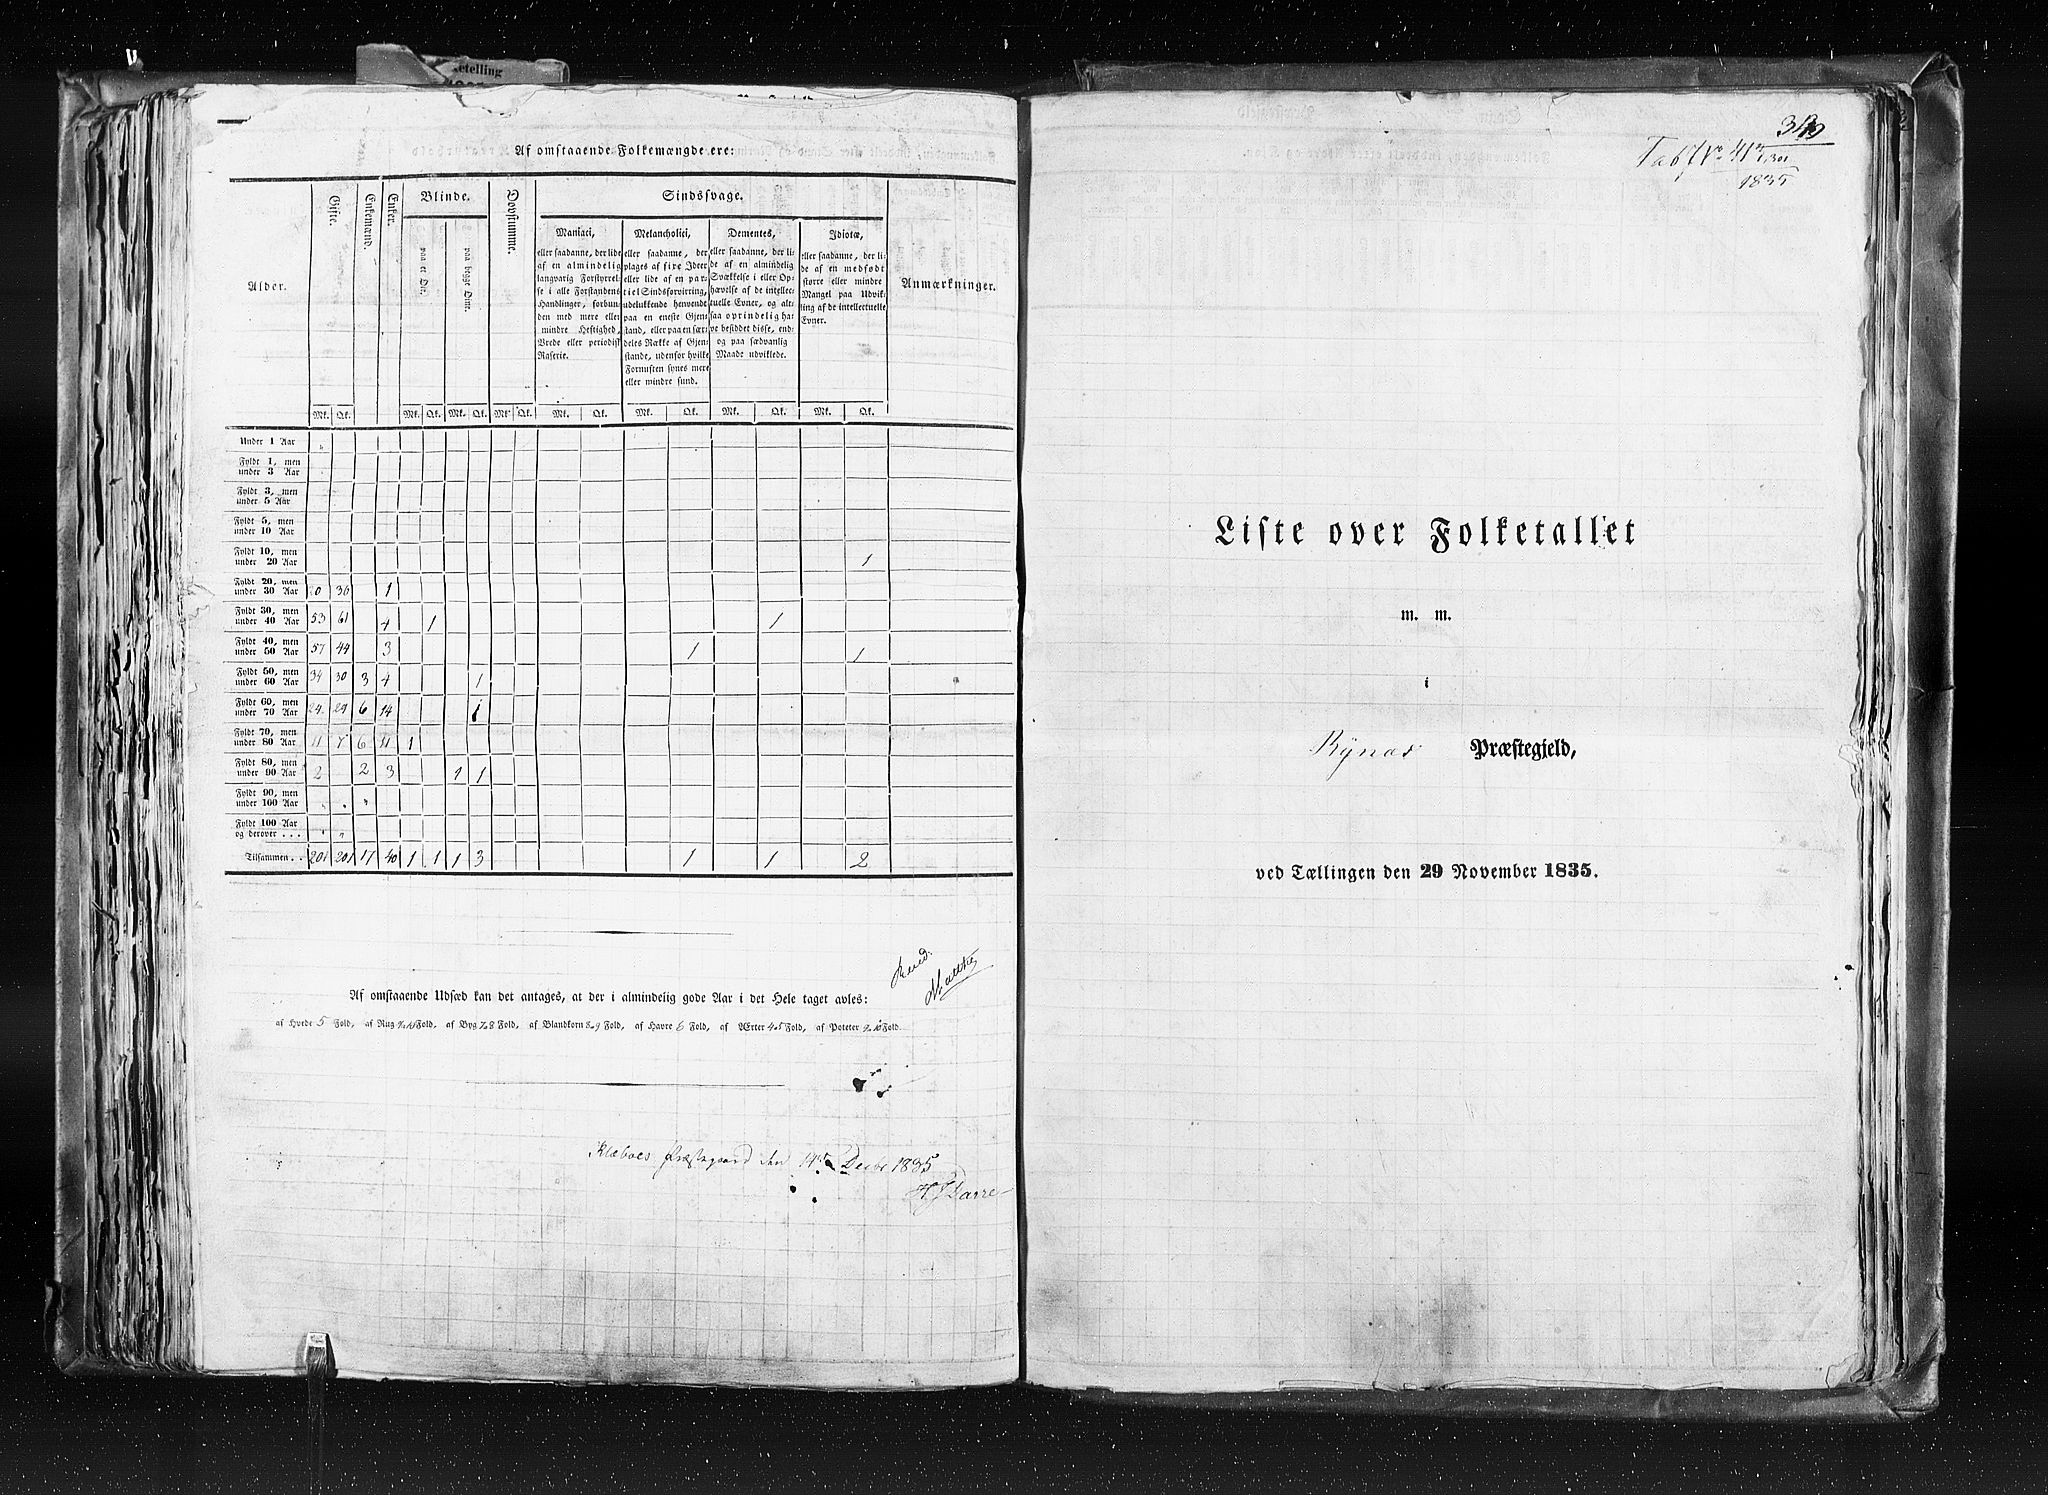 ketelling
Af omstaaende Folkemængde ere:
Alder. Gifte. Enkemænd. Enker. Blinde. Døvstumme. Sindssvage. Anmærkninger.
paa et Øie. paa begge Øine.
Maniaci, eller saadanne, der lide af en almindelig langvarig Forstyrrelse i alle Forstandens Handlinger, forbunden med mere eller mindre Heftighed, Vrede eller periodisk Raserie.
Melancholici, eller saadanne, der plages af fixe Ideer eller lide af en partiel Sindsforvirring, udelukkende henvendt paa en eneste Gjenstand, eller paa en særdeles Række af Gjenstande, udenfor hvilke Fornuften synes mere eller mindre sund.
Dementes, eller saadanne, der lide af en almindelig Svækkelse i eller Ophævelse af de intellectuelle Evner, og altsaa oprindelig have besiddet disse, endog paa sædvanlig Maade udviklede.
Idiotæ, eller saadanne, der lide af en medfødt større eller mindre Mangel paa Udvikling af de intellectuelle Evner.
Mk. Qk. Mk. Qk. Mk. Qk. Mk. Qk. Mk. Qk. Mk. Qk. Mk. Qk. Mk. Qk.
Under 1 Aar
Fyldt 1, men
under 3 Aar
Fyldt 3, men
under 5 Aar
Fyldt 5, men
under 10 Aar
Fyldt 10, men
under 20 Aar 1
Fyldt 20, men
under 30 Aar 20 30 1
Fyldt 30, men
under 40 Aar 53 61 4 1 1
Fyldt 40, men
under 50 Aar 57 44 3 1 1
Fyldt 50, men
under 60 Aar 34 30 3 4 1
Fyldt 60, men
under 70 Aar 24 29 6 14 1
Fyldt 70, men
under 80 Aar 11 7 6 11 1
Fyldt 80, men
under 90 Aar 2 2 3 1 1
Fyldt 90, men
under 100 Aar
Fyldt 100 Aar
og derover . . .
Tilsammen . . 201 201 17 40 1 1 1 3 1 1 2
Af omstaaende Udsæd kan det antages, at der i almindelig gode Aar i det Hele taget avles:
af Hvede 5 Fold, af Rug Fold, af Byg 7 a 8 Fold, af Blandkorn 8 a 9 Fold, af Havre 6 Fold, af Ærter 4 a 5 Fold, af Poteter 9 a 10 Fold.
Klæboes Præstegaard den 14de Decbr 1835
H J Darre
Tab No 41
1835
Liste over Folketallet
m. m.
i
Bynæs Præstegjeld,
ved Tællingen den 29 November 1835.